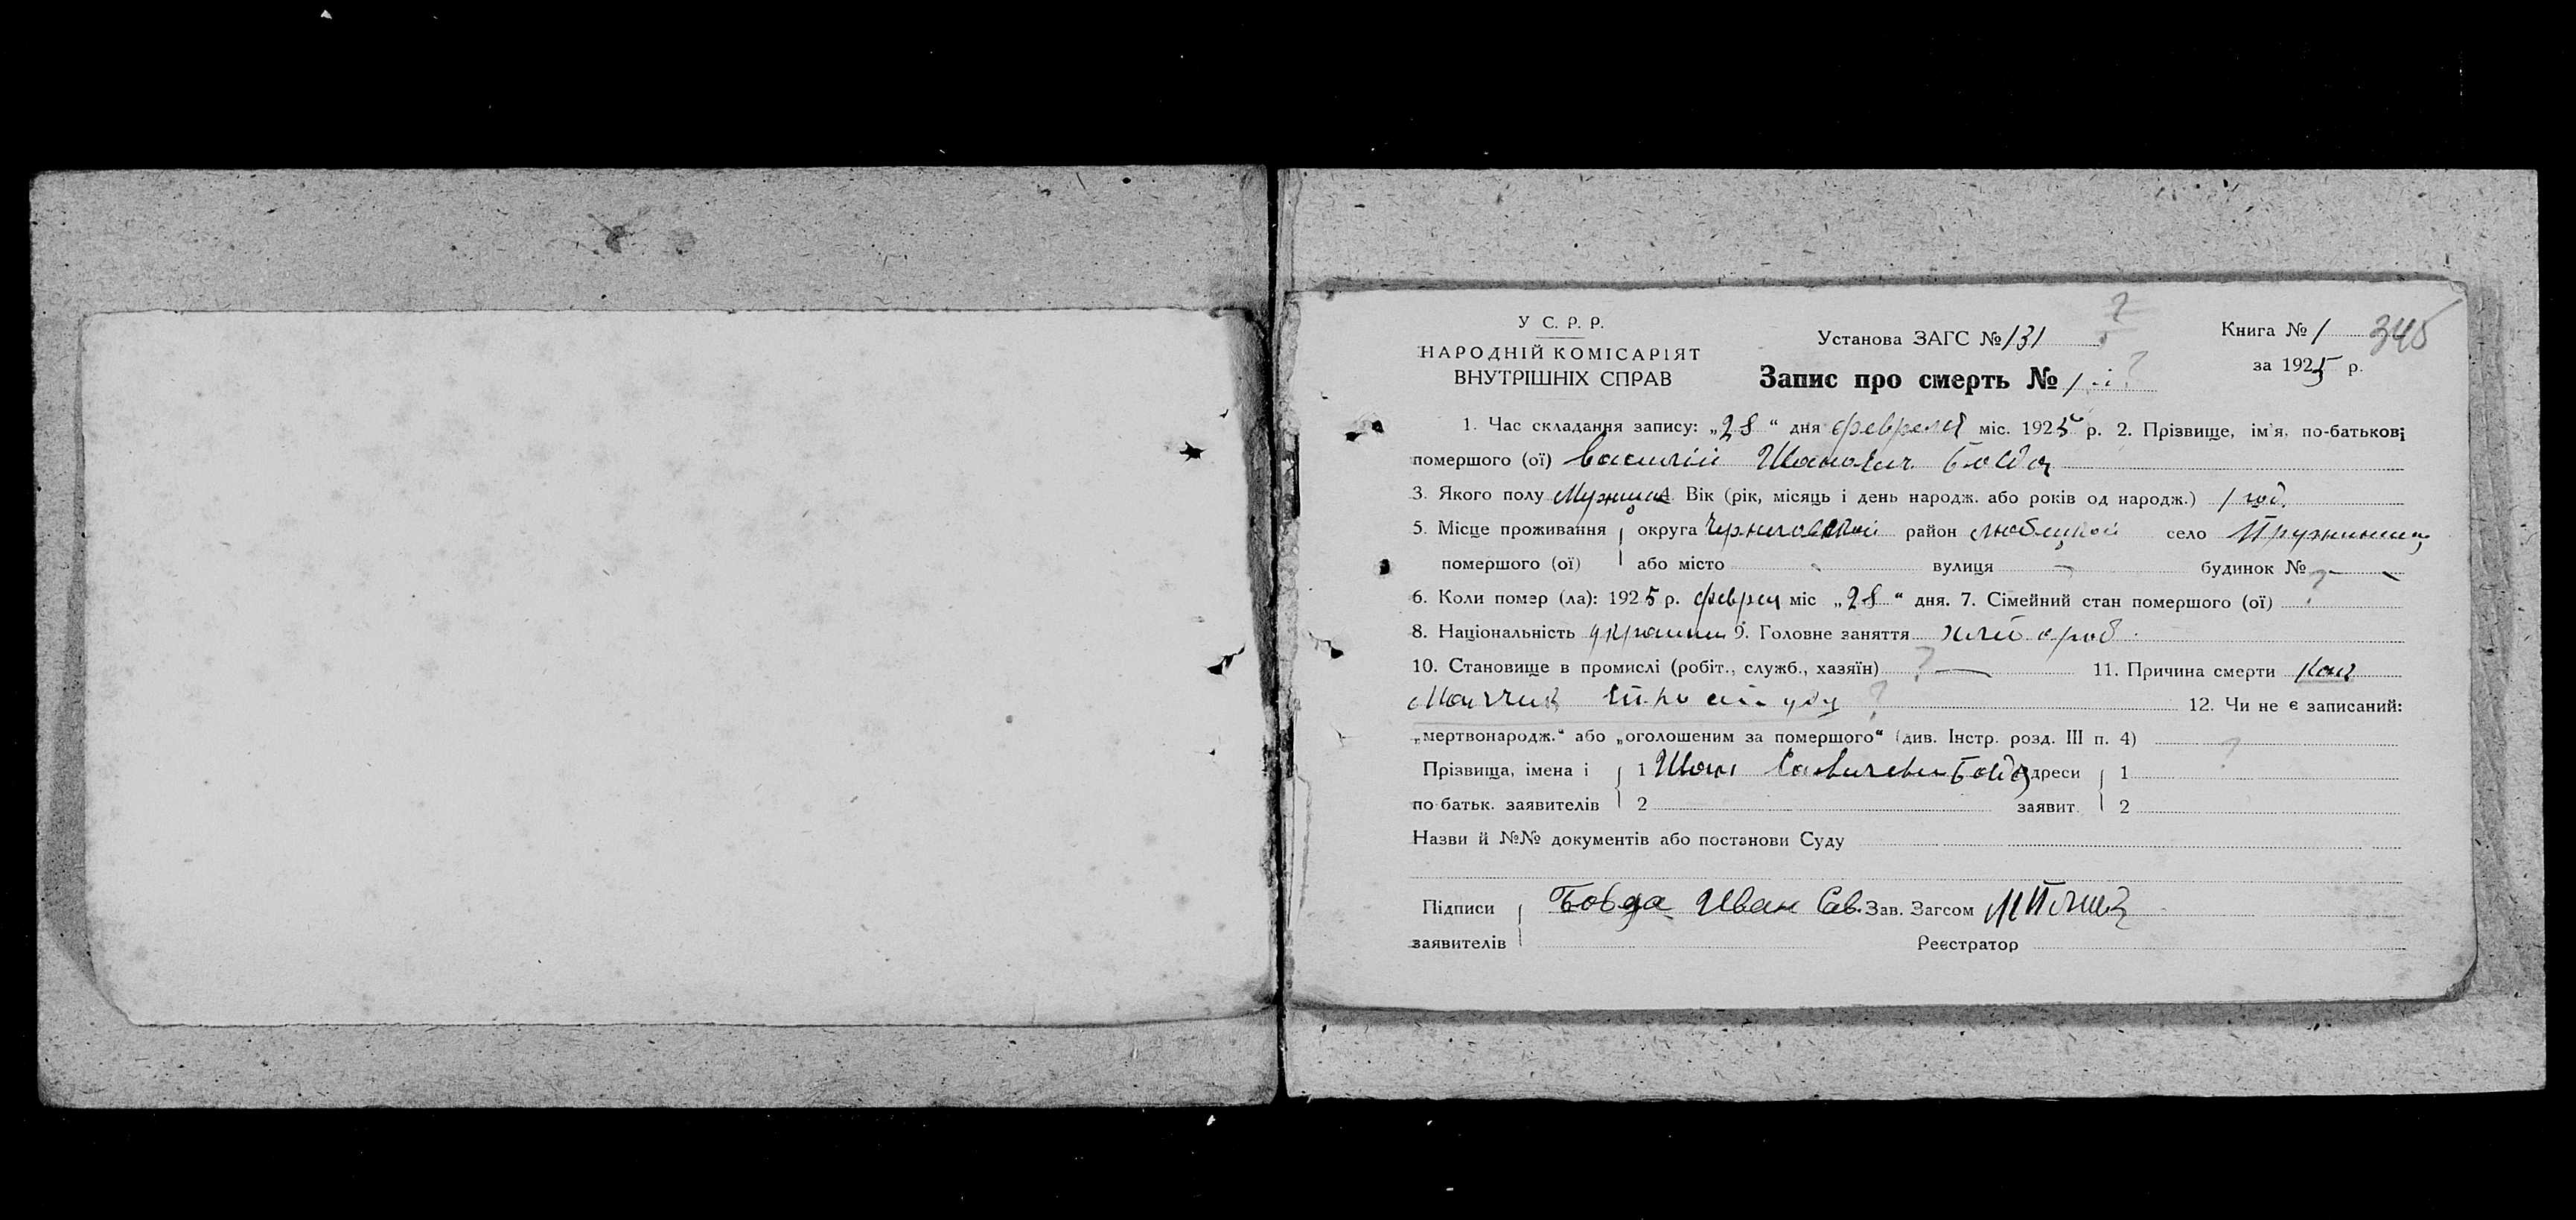 У С. Р. Р.
НАРОДНІЙ КОМІСАРІЯТ
ВНУТРІШНІХ СПРАВ
Установа ЗАГС № 131 ?
Запис про смерть № 1 ?
Книга № 1 345
за 1925 р.
1. Час складання запису: „28“ дня февраля міс. 1925 р. 2. Прізвище, ім'я, по-батькові
помершого (ої) Василий Иванович Бовда
3. Якого полу Мужщи 4. Вік (рік, місяць і день народж. або років од народж.) 1 год.
5. Місце проживання округа Черниговской район Любецкой село Пружинищ
помершого (ої) або місто - вулиця - будинок № ? -
6. Коли помер (ла): 1925 р. феврал міс „28“ дня. 7. Сімейний стан помершого (ої) ?
8. Національність украин 9. Головне заняття хлибороб
10. Становище в промислі (робіт., служб., хазяїн) ? — 11. Причина смерти
? 12. Чи не є записаний:
„мертвонародж.“ або „оголошеним за помершого“ (див. Інстр. розд. III п. 4) ?
Прізвища, імена і 1 Иван Савичевич Бовда Адреси 1
по батьк. заявителів 2 заявит. 2
Назви й №№ документів або постанови Суду
Підписи Бовда Иван Сав. Зав. Загсом
заявителів Реєстратор